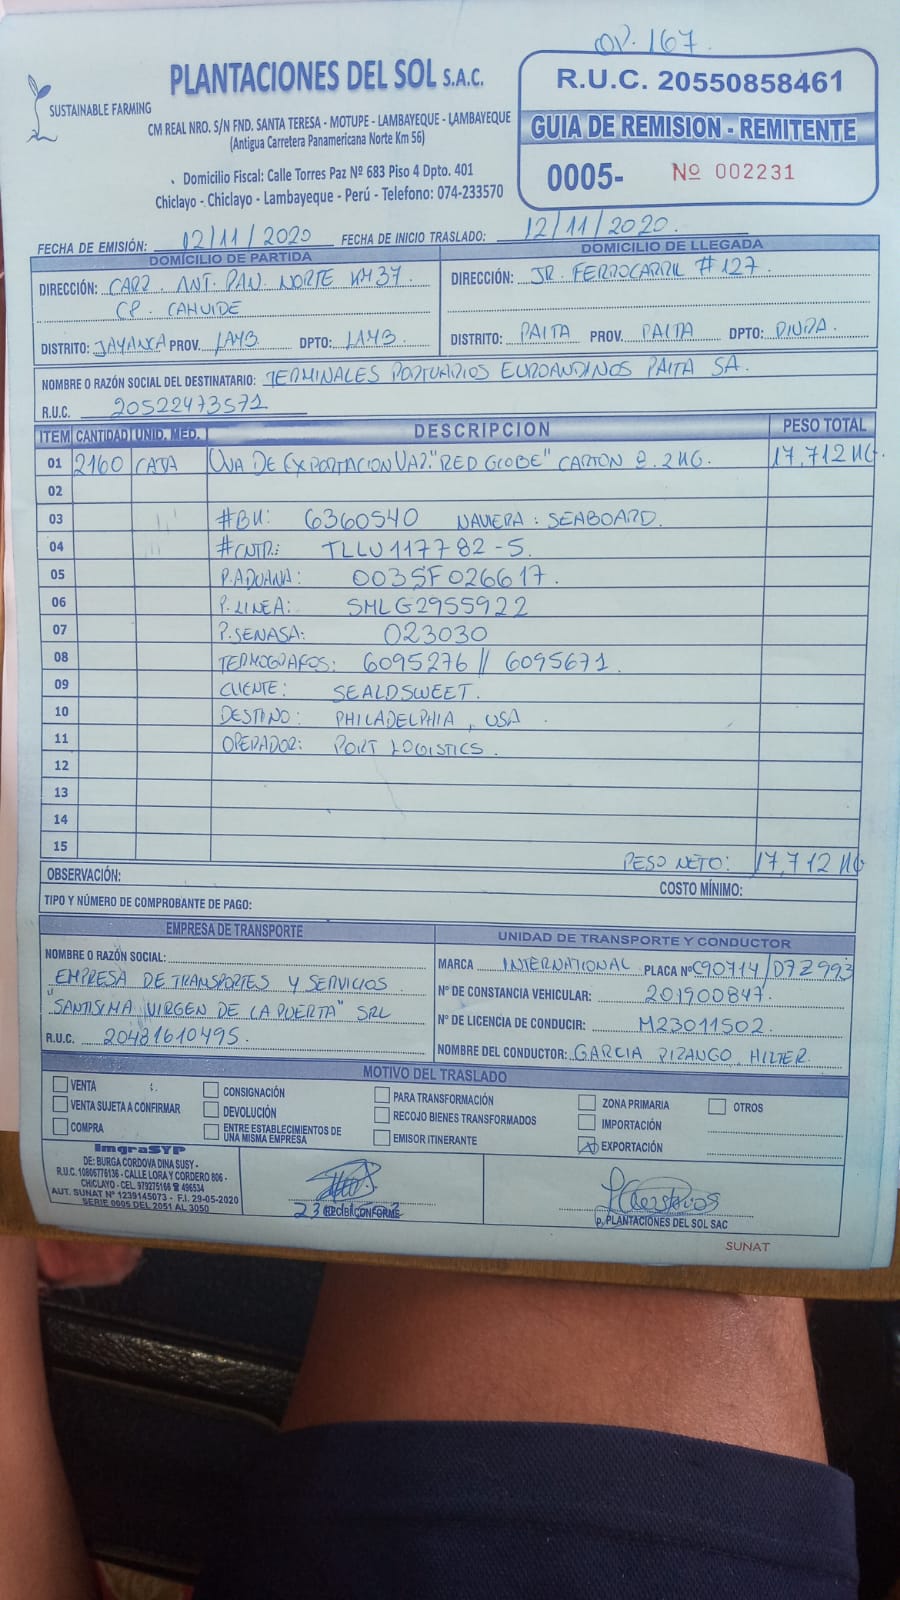 OV. 167.
PLANTACIONES DEL SOL S.A.C.
SUSTAINABLE FARMING
CM REAL NRO. S/N FND. SANTA TERESA - MOTUPE - LAMBAYEQUE - LAMBAYEQUE
(Antigua Carretera Panamericana Norte Km 56)
Domicilio Fiscal: Calle Torres Paz Nº 683 Piso 4 Dpto. 401
Chiclayo - Chiclayo - Lambayeque - Perú - Telefono: 074-233570
R.U.C. 20550858461
GUIA DE REMISION - REMITENTE
0005- Nº 002231
FECHA DE EMISIÓN: 12/11/2020 FECHA DE INICIO TRASLADO: 12/11/2020.
DOMICILIO DE PARTIDA
DIRECCIÓN: CARR. ANT. PAN. NORTE KM 37.
CP. CAHUIDE
DISTRITO: JAYANCA PROV. LAMB. DPTO: LAMB.
DOMICILIO DE LLEGADA
DIRECCIÓN: JR. FERROCARRIL # 127.
DISTRITO: PAITA PROV. PAITA DPTO: PIURA.
NOMBRE O RAZÓN SOCIAL DEL DESTINATARIO: TERMINALES PORTUARIOS EUROANDINOS PAITA SA.
R.U.C. 20522473571
ITEM CANTIDAD UNID. MED. DESCRIPCION PESO TOTAL
01 2160 CAJA UVA DE EXPORTACION VAR. "RED GLOBE" CARTON 8.2 KG. 17,712 KG.
02
03 #BK: 6360540 NAVIERA: SEABOARD.
04 #CNTR.: TLLU 117782-5.
05 P. ADUANA: 0035F026617.
06 P. LINEA: SMLG2955922
07 P. SENASA: 023030
08 TERMOGRAFOS: 6095276 // 6095671.
09 CLIENTE: SEALDSWEET.
10 DESTINO: PHILADELPHIA, USA.
11 OPERADOR: PORT LOGISTICS.
12
13
14
15
PESO NETO: 17,712 KG
OBSERVACIÓN:
COSTO MÍNIMO:
TIPO Y NÚMERO DE COMPROBANTE DE PAGO:
EMPRESA DE TRANSPORTE
NOMBRE O RAZÓN SOCIAL:
EMPRESA DE TRANSPORTES Y SERVICIOS
"SANTISIMA VIRGEN DE LA PUERTA" SRL
R.U.C. 20481610495.
UNIDAD DE TRANSPORTE Y CONDUCTOR
MARCA INTERNATIONAL PLACA Nº C90714/D7Z993
Nº DE CONSTANCIA VEHICULAR: 201900847.
Nº DE LICENCIA DE CONDUCIR: M23011502.
NOMBRE DEL CONDUCTOR: GARCIA PIZANGO, HILTER
MOTIVO DEL TRASLADO
VENTA
VENTA SUJETA A CONFIRMAR
COMPRA
CONSIGNACIÓN
DEVOLUCIÓN
ENTRE ESTABLECIMIENTOS DE
UNA MISMA EMPRESA
PARA TRANSFORMACIÓN
RECOJO BIENES TRANSFORMADOS
EMISOR ITINERANTE
ZONA PRIMARIA
IMPORTACIÓN
EXPORTACIÓN
OTROS
ImgraSYP
DE: BURGA CORDOVA DINA SUSY -
R.U.C. 10806776136 - CALLE LORA Y CORDERO 806 -
CHICLAYO - CEL. 979275168 ☎ 496534
AUT. SUNAT Nº 1239145073 - F.I. 29-05-2020
SERIE 0005 DEL 2051 AL 3050
RECIBÍ CONFORME
p. PLANTACIONES DEL SOL SAC
SUNAT